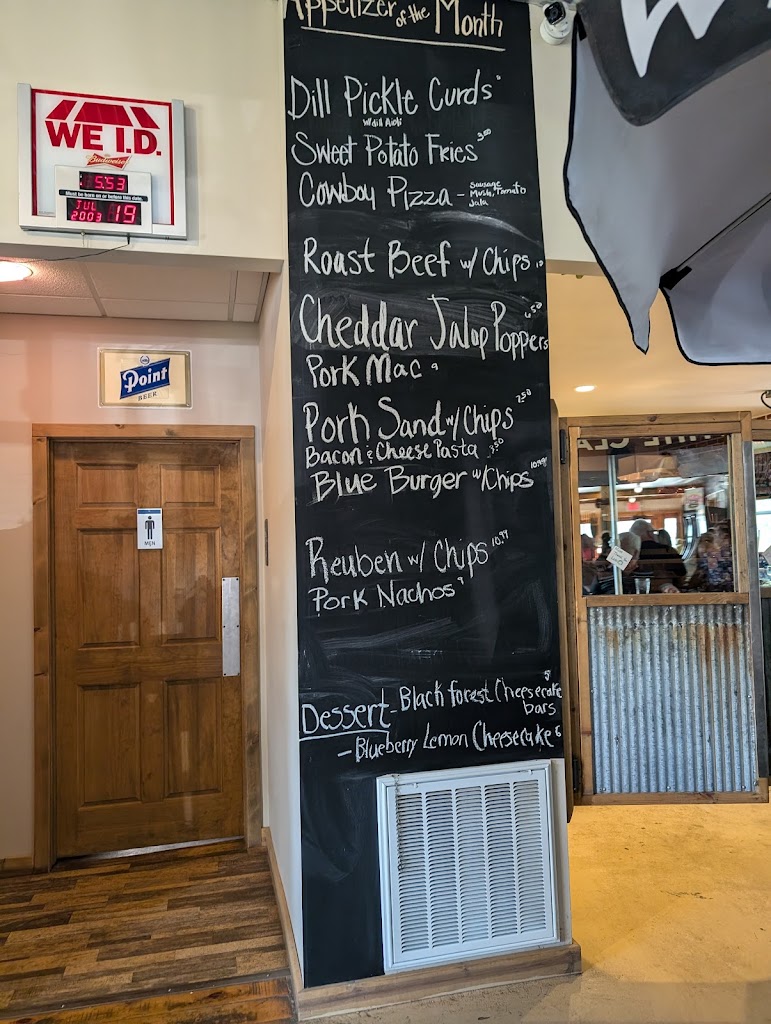 Appetizer of the Month
Dill Pickle Curds
w/dill Aioli
Sweet Potato Fries
Cowboy Pizza - Sausage
Mush, Tomato
Jala
Roast Beef w/ Chips 10
Cheddar Jalop Poppers 6.50
Pork Mac 9
Pork Sand w/ Chips 7.50
Bacon & Cheese Pasta 8.50
Blue Burger w/Chips 10.99
Reuben w/ Chips 10.99
Pork Nachos 9
Dessert - Black forest Cheesecake 5
bars
- Blueberry Lemon Cheesecake 6
WE I.D.
Budweiser
5:53
Must be born on or before this date.
JUL 19
2003
Point
BEER
MEN